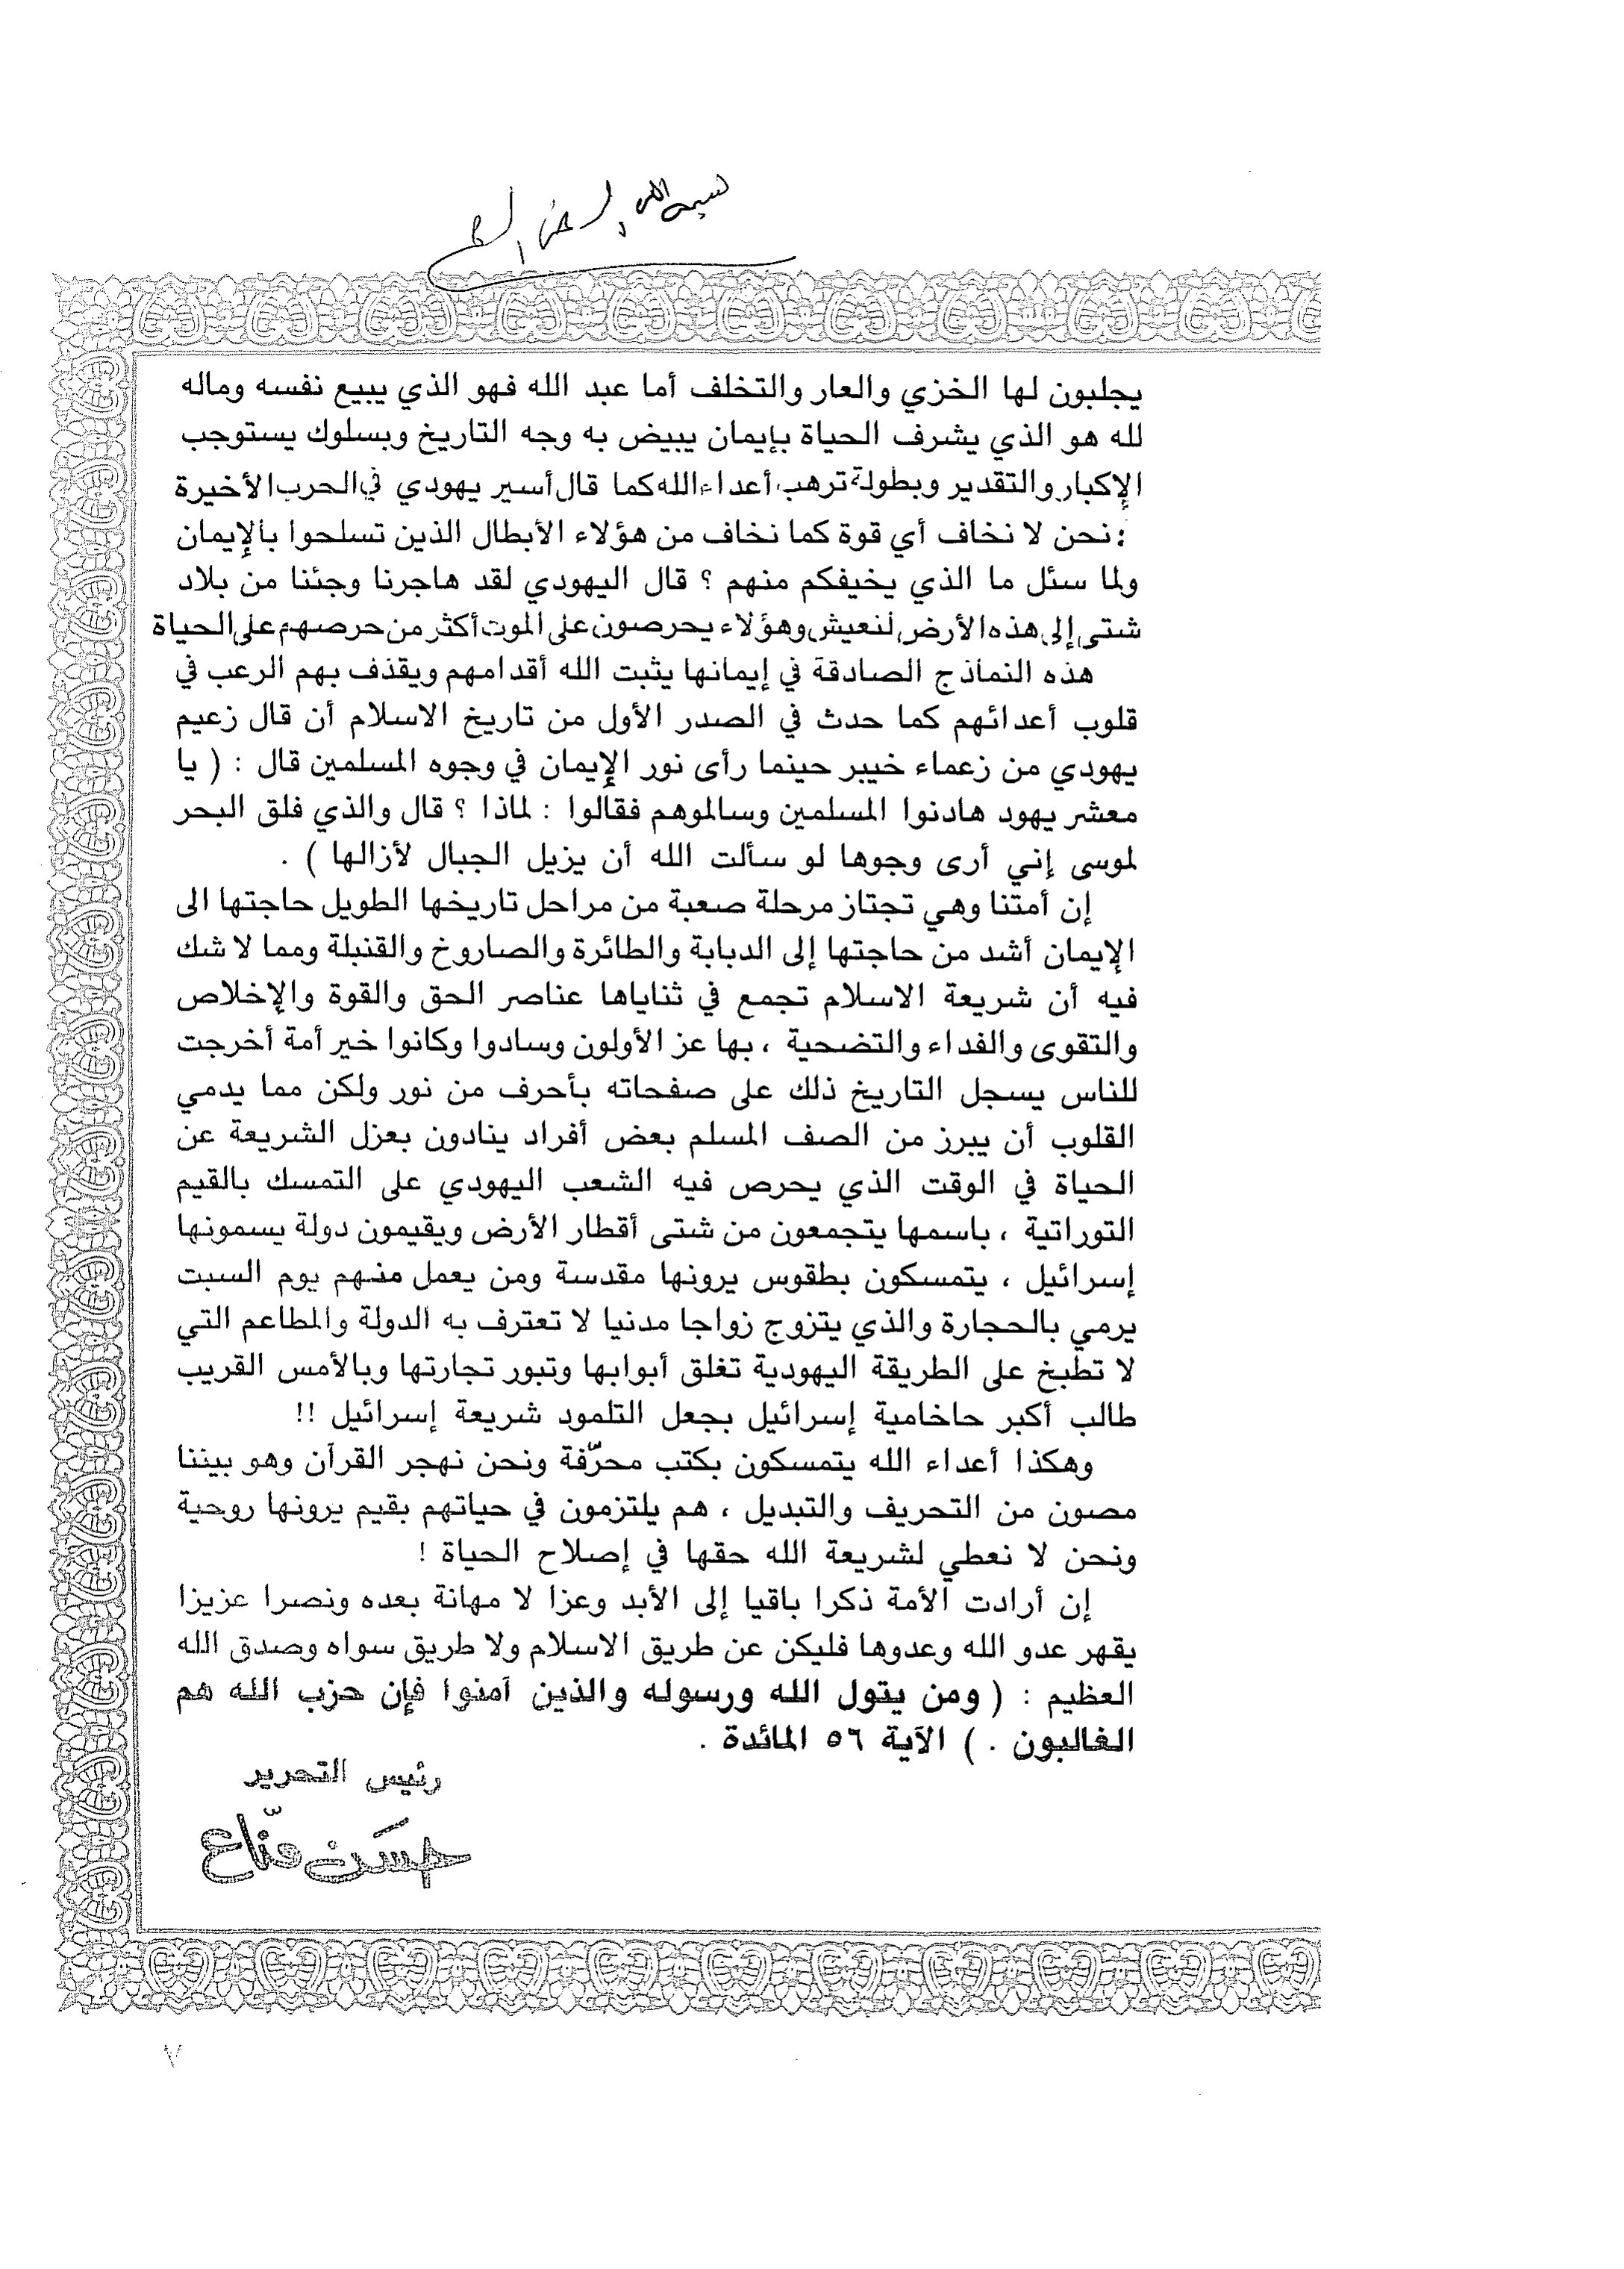 بسم الله الرحمن الرحيم
يجلبون لها الخزي والعار والتخلف أما عبد الله فهو الذي يبيع نفسه وماله
لله هو الذي يشرف الحياة بإيمان يبيض به وجه التاريخ وبسلوك يستوجب
الإكبار والتقدير وبطولة ترهب أعداء الله كما قال أسير يهودي في الحرب الأخيرة
: نحن لا نخاف أي قوة كما نخاف من هؤلاء الأبطال الذين تسلحوا بالإيمان
ولما سئل ما الذي يخيفكم منهم ؟ قال اليهودي لقد هاجرنا وجئنا من بلاد
شتى إلى هذه الأرض لنعيش وهؤلاء يحرصون على الموت أكثر من حرصهم على الحياة
هذه النماذج الصادقة في إيمانها يثبت الله أقدامهم ويقذف بهم الرعب في
قلوب أعدائهم كما حدث في الصدر الأول من تاريخ الاسلام أن قال زعيم
يهودي من زعماء خيبر حينما رأى نور الإيمان في وجوه المسلمين قال : ( يا
معشر يهود هادنوا المسلمين وسالموهم فقالوا : لماذا ؟ قال والذي فلق البحر
لموسى إني أرى وجوها لو سألت الله أن يزيل الجبال لأزالها ) .
إن أمتنا وهي تجتاز مرحلة صعبة من مراحل تاريخها الطويل حاجتها الى
الإيمان أشد من حاجتها إلى الدبابة والطائرة والصاروخ والقنبلة ومما لا شك
فيه أن شريعة الاسلام تجمع في ثناياها عناصر الحق والقوة والإخلاص
والتقوى والفداء والتضحية ، بها عز الأولون وسادوا وكانوا خير أمة أخرجت
للناس يسجل التاريخ ذلك على صفحاته بأحرف من نور ولكن مما يدمي
القلوب أن يبرز من الصف المسلم بعض أفراد ينادون بعزل الشريعة عن
الحياة في الوقت الذي يحرص فيه الشعب اليهودي على التمسك بالقيم
التوراتية ، باسمها يتجمعون من شتى أقطار الأرض ويقيمون دولة يسمونها
إسرائيل ، يتمسكون بطقوس يرونها مقدسة ومن يعمل منهم يوم السبت
يرمي بالحجارة والذي يتزوج زواجا مدنيا لا تعترف به الدولة والمطاعم التي
لا تطبخ على الطريقة اليهودية تغلق أبوابها وتبور تجارتها وبالأمس القريب
طالب أكبر حاخامية إسرائيل بجعل التلمود شريعة إسرائيل !!
وهكذا أعداء الله يتمسكون بكتب محرّفة ونحن نهجر القرآن وهو بيننا
مصون من التحريف والتبديل ، هم يلتزمون في حياتهم بقيم يرونها روحية
ونحن لا نعطي لشريعة الله حقها في إصلاح الحياة !
إن أرادت الأمة ذكرا باقيا إلى الأبد وعزا لا مهانة بعده ونصرا عزيزا
يقهر عدو الله وعدوها فليكن عن طريق الاسلام ولا طريق سواه وصدق الله
العظيم : ( ومن يتول الله ورسوله والذين آمنوا فإن حزب الله هم
الغالبون . ) الآية ٥٦ المائدة .
رئيس التحرير
حسَن منّاع
٧